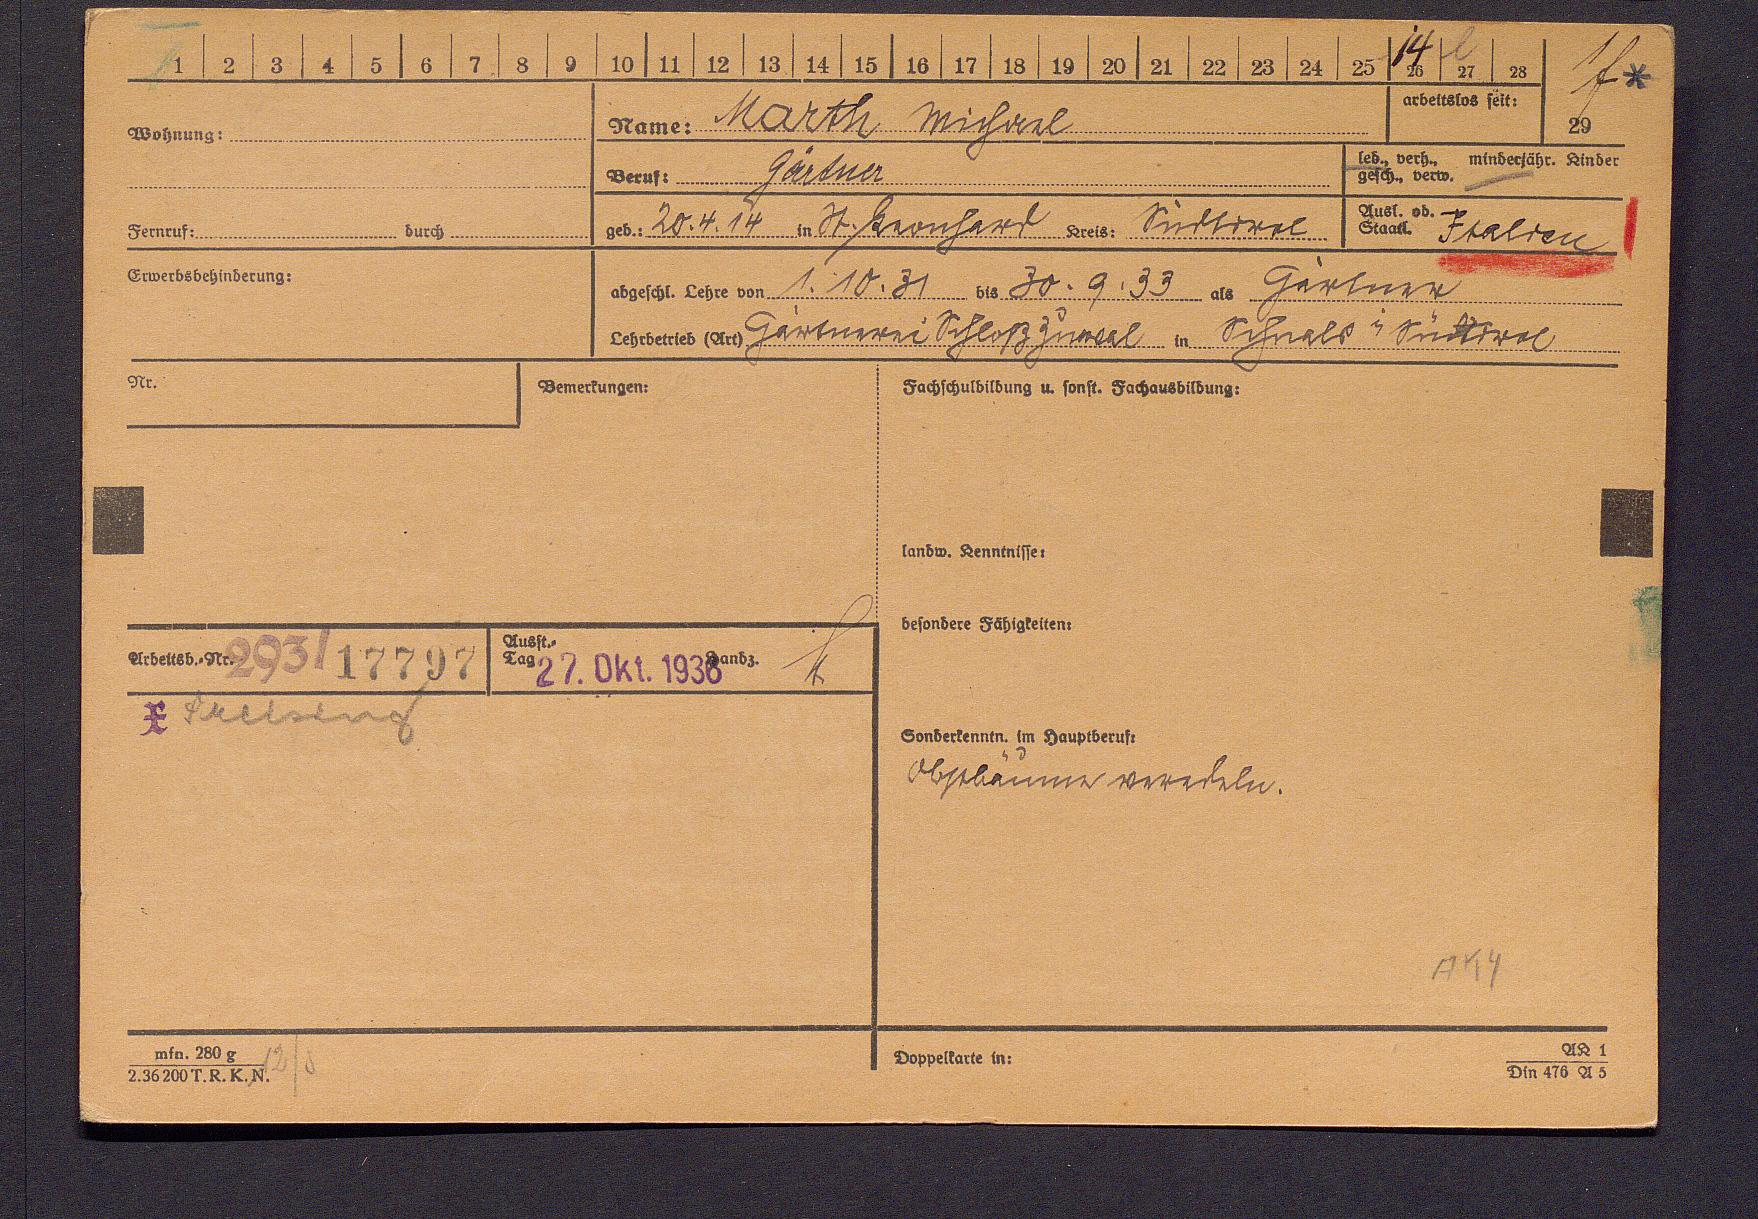 1 2 3 4 5 6 7 8 9 10 11 12 13 14 15 16 17 18 19 20 21 22 23 24 25 26 27 28
14
29
arbeitslos seit:
Wohnung:
Name: Marth Michael
Beruf: Gärtner
led., verh., minderjähr. Kinder
gesch., verw.
Fernruf: durch
geb.: 20.4.14 in St. Leonhard Kreis: Südtirol
Ausl. od. Staatl. Italien
Erwerbsbehinderung:
abgeschl. Lehre von 1.10.31 bis 30.9.33 als Gärtner
Lehrbetrieb (Art) Gärtnerei Schloß in Schnals i Südtirol
Nr.
Bemerkungen:
Fachschulbildung u. sonst. Fachausbildung:
landw. Kenntnisse:
besondere Fähigkeiten:
Arbeitsb.-Nr. 293/17797
Ausst.-Tag 27. Okt. 1936 Handz.
Sonderkenntn. im Hauptberuf:
Obstbäume veredeln.
mfn. 280 g
2.36 200 T. R. K. N.
Doppelkarte in:
AK 1
Din 476 A 5